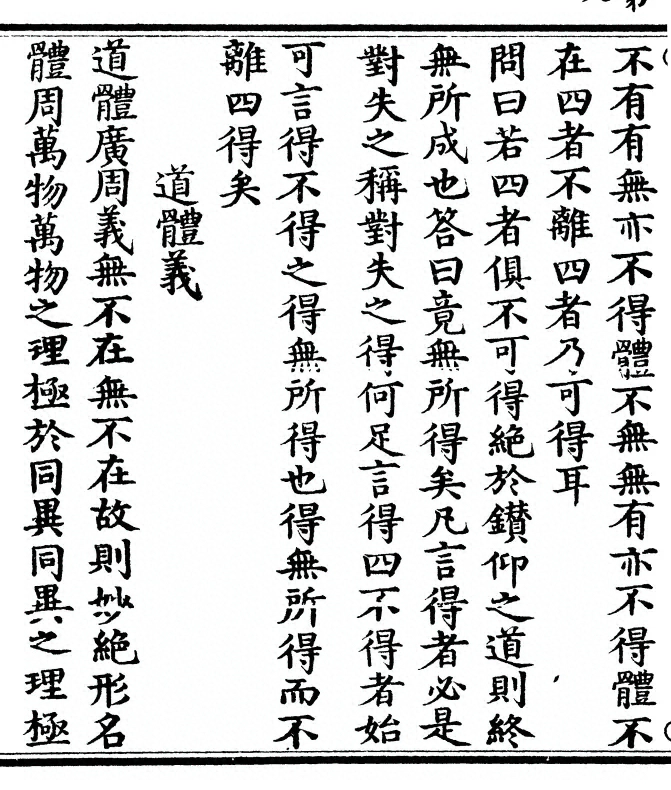 不有有無亦不得體不無無有亦不得體不
在四者不離四者乃可得耳
問曰若四者俱不可得絕於鑚仰之道則終
無所成也答曰竟無所得矣凡言得者必是
對失之稱對失之得何足言得四不得者始
可言得不得之得無所得也得無所得而不
離四得矣
道體義
道體廣周義無不在無不在故則妙絕形名
體周萬物萬物之理極於同異同異之理極